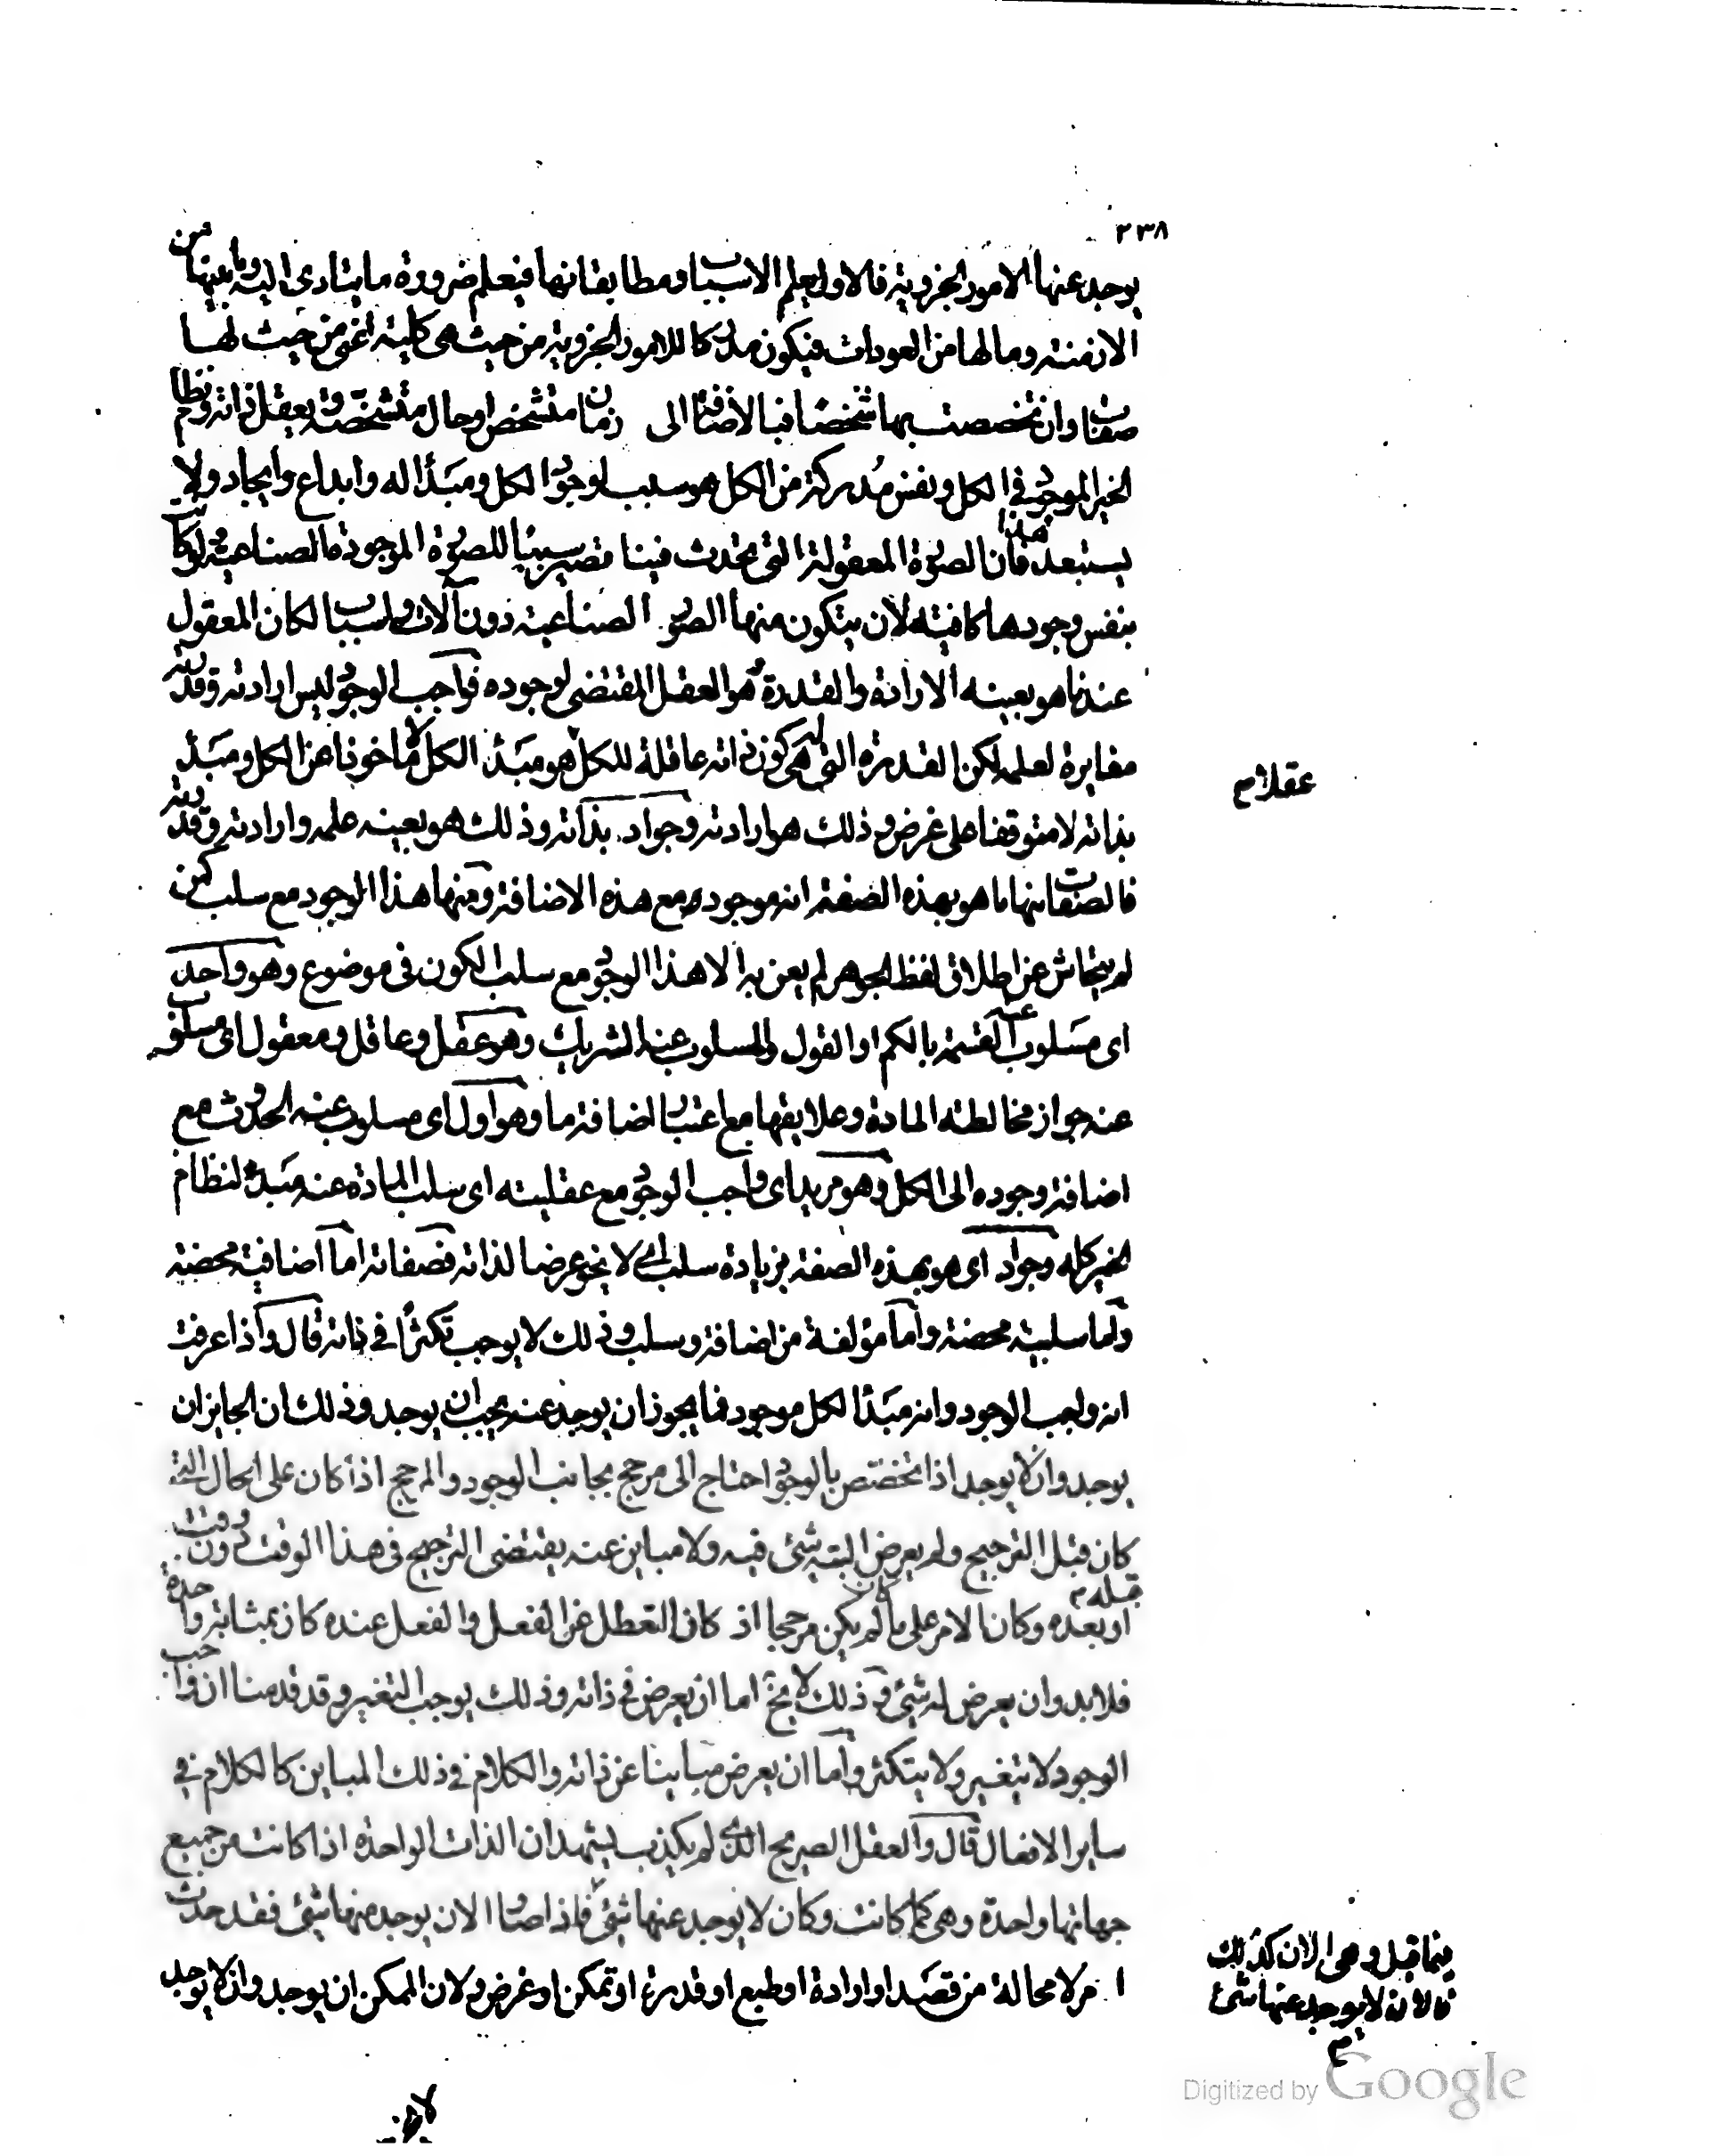 ٢٣٨
يوجد عنها الامور الجزوية فالاول يعلم الاسباب ومطابقاتها فيعلم ضرورة ما يتادى اليه وما بينها من
الازمنة وما لها من العودات فيكون مدركا للامور الجزوية من حيث هى كلية اغنى من حيث لها
صفات وان تخصصت بها شخصا فبالاضافة الى زمان متشخص او حال متشخصة ويعقل ذاته ونظام
الخير الموجود فى الكل ونفس مدركة من الكل هو سبب لوجود الكل ومبدأ له وابداع وايجاد ولا
يستبعد هذا فان الصورة المعقولة التى تحدث فينا تصير سببا للصورة الموجودة الصناعية ولو كانت
بنفس وجودها كافية لان يتكون منها الصور الصناعية دون آلات واسباب لكان المعقول
عندنا هو بعينه الارادة والقدرة وهو العقل المقتضى لوجوده فواجب الوجود ليس ارادته وقدرته
مغايرة لعلمه لكن القدرة التى له هى كون ذاته عاقلة للكل هو مبدأ الكل لا ماخوذا عن الكل ومبدأ
عقلا م
بذاته لا متوقفا على غرض وذلك هو ارادته وجواد بذاته وذلك هو بعينه علمه وارادته وقدرته
فالصفات منها ما هو بهذه الصفة انه موجود مع هذه الاضافة ومنها هذا الوجود مع سلب كمن
لم يتحاش عن اطلاق لفظ الجوهر لم يعن به الا هذا الوجود مع سلب الكون فى موضوع وهو واحد
اى مسلوب عنه القسمة بالكم او القول والمسلوب عنه الشريك وهو عقل وعاقل ومعقول اى مسلوب
عنه جواز مخالطة المادة وعلايقها مع اعتبار اضافة ما وهو اول اى مسلوب عنه الحدوث مع
اضافة وجوده الى الكل وهو مريد اى واجب الوجود مع عقليته اى سلب المادة عنه مبدأ لنظام
الخير كله وجواد اى هو بهذه الصفة بزيادة سلب اى لا ينحو غرضا لذاته فصفاته اما اضافية محضة
واما سلبية محضة واما مؤلفة من اضافة وسلب وذلك لا يوجب تكثرا فى ذاته قال واذا عرفت
انه واجب الوجود وانه مبدأ لكل موجود فما يجوز ان يوجد عنه يجب ان يوجد وذلك ان الجايز ان
يوجد وان لا يوجد اذا تخصص بالوجود احتاج الى مرجح بجانب الوجود والمرجح اذا كان على الحال التى
كان قبل الترجيح ولم يعرض البتة شئ فيه ولا مباين عنه يقتضى الترجيح فى هذا الوقت دون وقت
قبله م او بعده وكان الامر على ما كان لم يكن مرجحا اذ كان التعطل عن الفعل والفعل عنده كان بمثابة واحدة
فلا بد وان يعرض له شئ وذلك لا يخ اما ان يعرض فى ذاته وذلك يوجب التغير وقد قدمنا ان واجب
الوجود لا يتغير ولا يتكثر واما ان يعرض مباينا عن ذاته والكلام فى ذلك المباين كالكلام فى
ساير الافعال قال والعقل الصريح الذى لم يكذب يشهد ان الذات الواحدة اذا كانت من جميع
جهاتها واحدة وهى كما كانت وكان لا يوجد عنها شئ فاذا صار الان يوجد منها شئ فقد حدث
فيما قبل وهى الان كذلك
فالان لا يوجد عنها شئ
م
امر لا محالة من قصد او ارادة او طبع او قدرة او تمكن او غرض ولان الممكن ان يوجد وان لا يوجد
لا
Digitized by Google